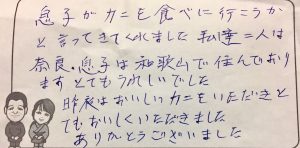 息子がカニを食べに行こうか
と言ってきてくれました 私達二人は
奈良、息子は和歌山で住んでおり
ますとてもうれしいでした
昨夜はおいしいカニをいただきと
てもおいしくいただきました
ありがとうございました